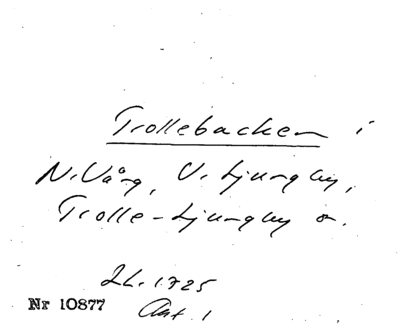 Trollebacken i
N. Vång, V. Ljungby,
Trolle-Ljungby s.
Nr 10877